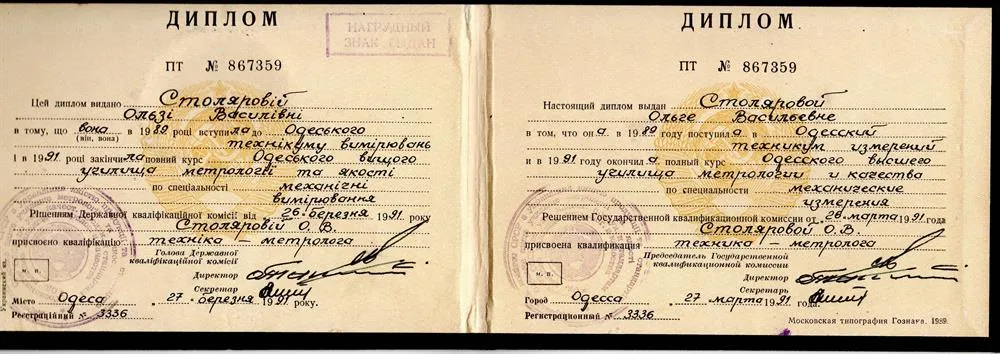 ДИПЛОМ
НАГРУДНЫЙ
ЗНАК ВЫДАН
ПТ № 867359
Цей диплом видано Столяровій
Ользі Василівні
в тому, що вона в 1989 році вступила до Одеського
(він, вона)
технікуму вимірювань
і в 1991 році закінчила повний курс Одеського вищого
училища метрології та якості
по спеціальності механічні
вимірювання
Рішенням Державної кваліфікаційної комісії від 26 березня 1991 року
Столяровій О. В.
присвоєно кваліфікацію техніка – метролога
Голова Державної
кваліфікаційної комісії
Директор
м. п.
Секретар
Місто Одеса 27 березня 1991 року.
Реєстраційний № 3336
Украинский яз.
ДИПЛОМ
ПТ № 867359
Настоящий диплом выдан Столяровой
Ольге Васильевне
в том, что она в 1989 году поступила в Одесский
техникум измерений
и в 1991 году окончила полный курс Одесского высшего
училища метрологии и качества
по специальности механические
измерения
Решением Государственной квалификационной комиссии от 26 марта 1991 года
Столяровой О. В.
присвоена квалификация техника – метролога
Председатель Государственной
квалификационной комиссии
Директор
м. п.
Секретарь
Город Одесса 27 марта 1991 года.
Регистрационный № 3336
Московская типография Гознака. 1989.